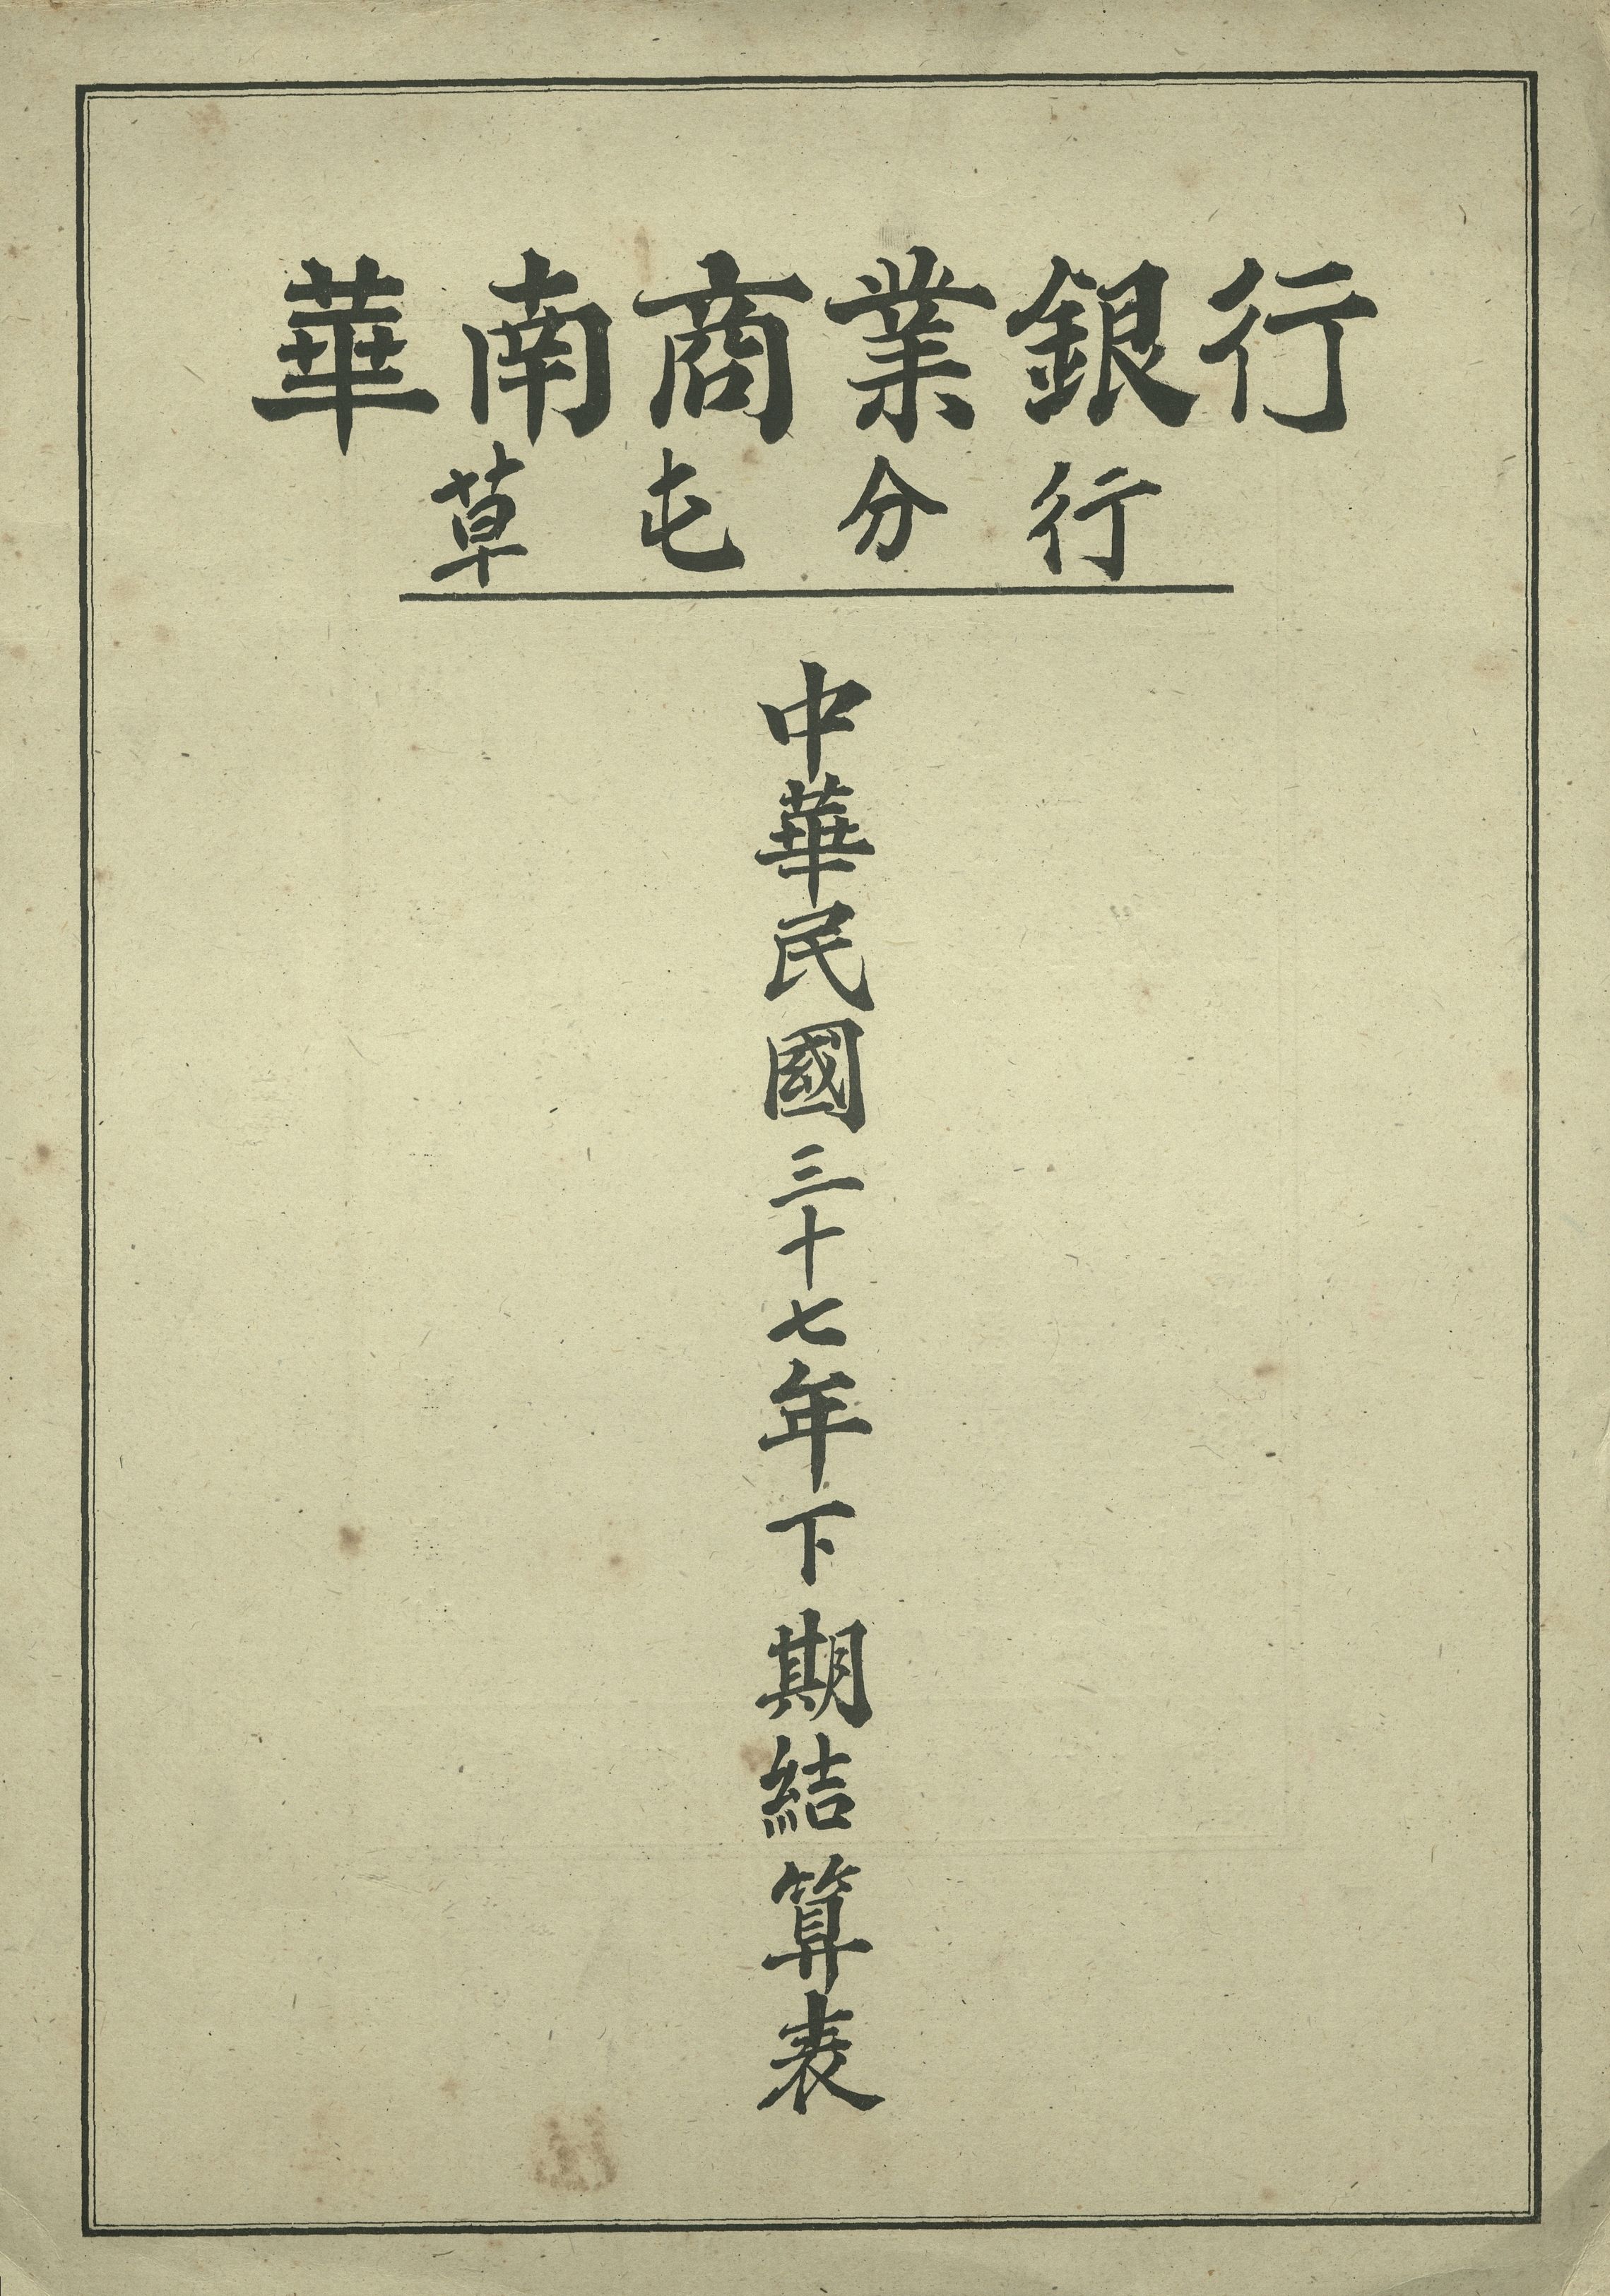 華南商業銀行
草屯分行
中華民國三十七年下期結算表